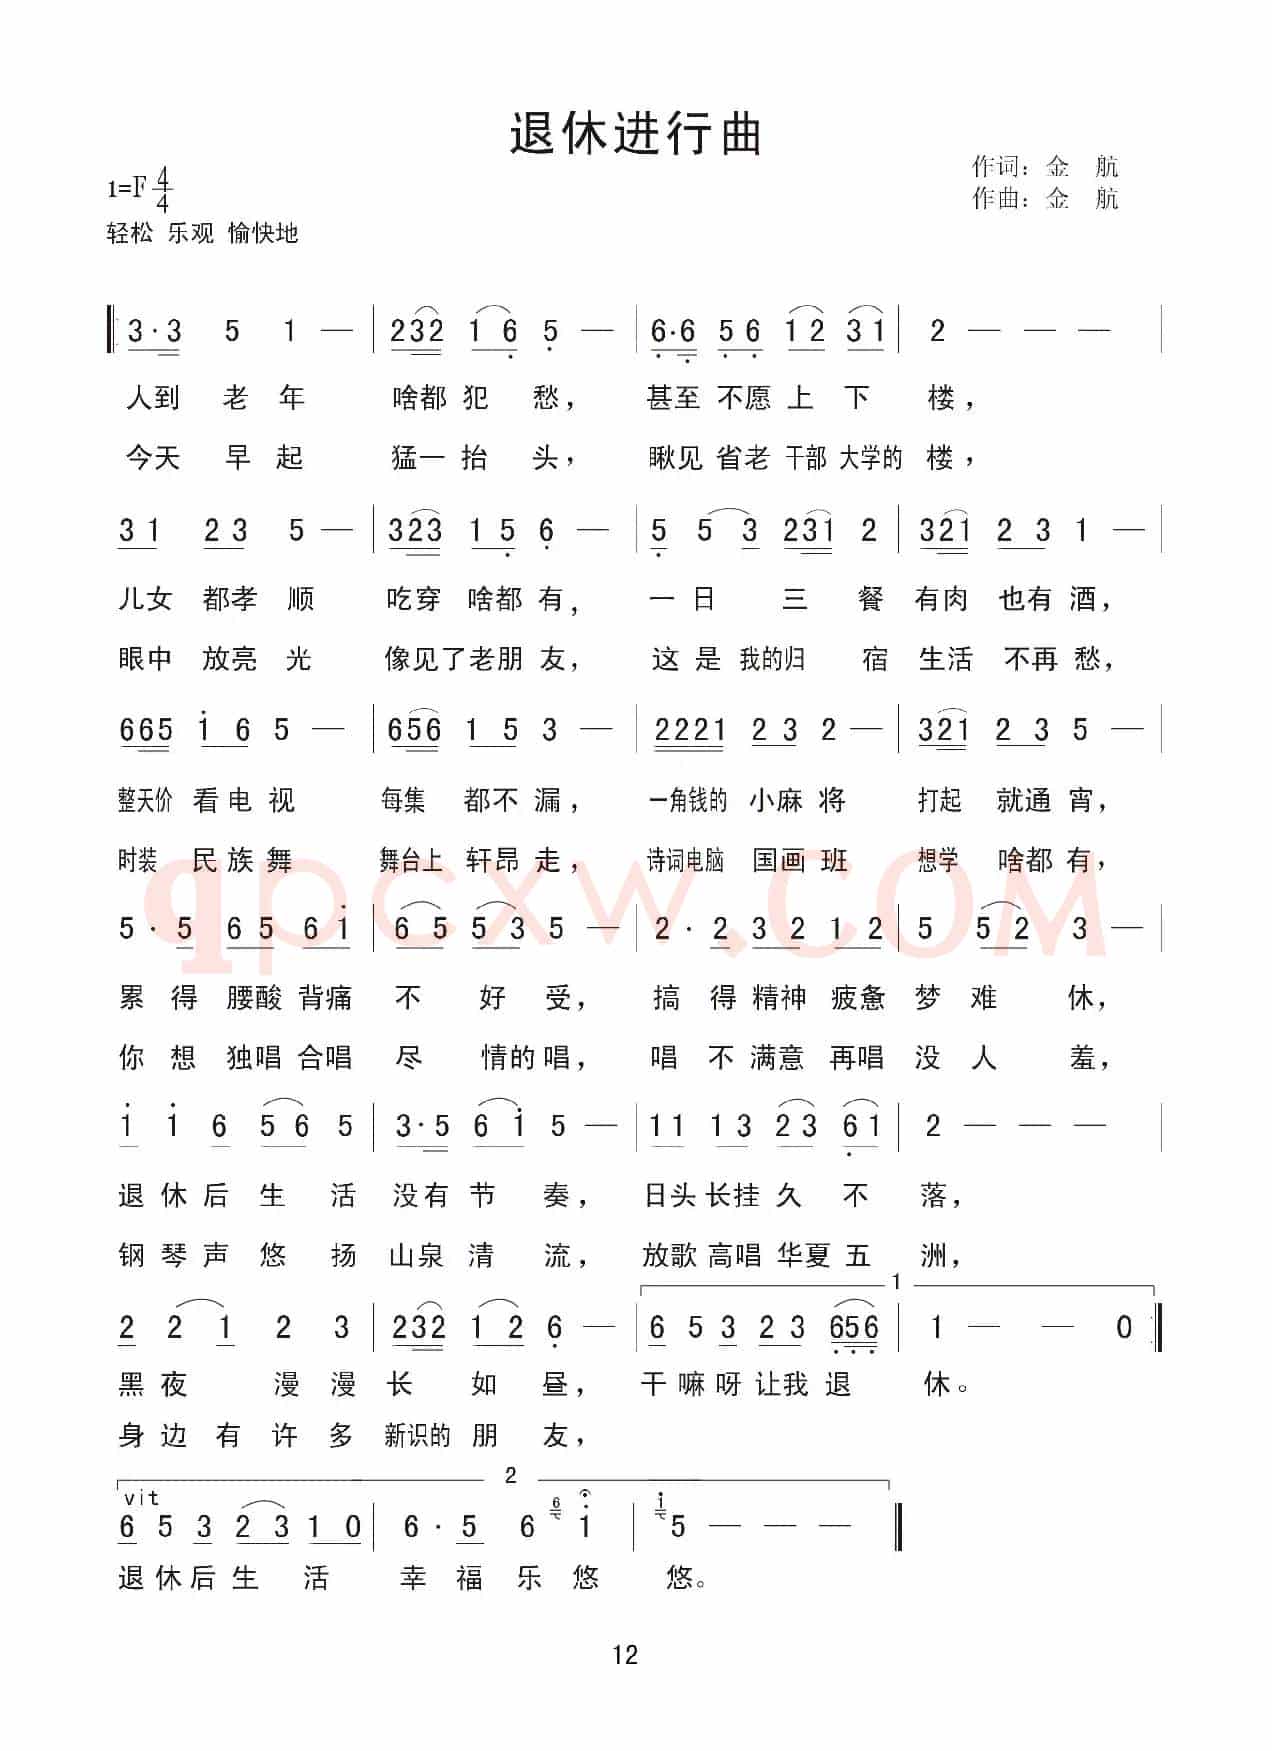 退休进行曲
1=F 4/4
作词：金 航
作曲：金 航
轻松 乐观 愉快地
3·3 5 1 — | 232 1 6 5 — | 6·6 5 6 1 2 3 1 | 2 — — — |
人到 老 年 啥都 犯 愁， 甚至 不愿 上 下 楼，
今天 早 起 猛一 抬 头， 瞅见 省老 干部 大学的 楼，
3 1 2 3 5 — | 323 1 5 6 — | 5 5 3 231 2 | 321 2 3 1 — |
儿女 都孝 顺 吃穿 啥都 有， 一 日 三 餐 有肉 也有 酒，
眼中 放亮 光 像见了老朋 友， 这 是 我的归 宿 生活 不再 愁，
665 1 6 5 — | 656 1 5 3 — | 2221 2 3 2 — | 321 2 3 5 — |
整天价 看电 视 每集 都不 漏， 一角钱的 小麻 将 打起 就通 宵，
时装 民族 舞 舞台上 轩昂 走， 诗词电脑 国画 班 想学 啥都 有，
5 · 5 6 5 6 1 | 6 5 5 3 5 — | 2 · 2 3 2 1 2 | 5 5 2 3 — |
累 得 腰酸 背痛 不 好 受， 搞 得 精神 疲惫 梦 难 休，
你 想 独唱 合唱 尽 情的 唱， 唱 不 满意 再唱 没 人 羞，
1 1 6 5 6 5 | 3·5 6 1 5 — | 1 1 1 3 2 3 6 1 | 2 — — — |
退 休 后 生 活 没有 节 奏， 日头 长挂 久 不 落，
钢 琴 声 悠 扬 山泉 清 流， 放歌 高唱 华夏 五 洲，
1
2 2 1 2 3 | 232 1 2 6 — | 6 5 3 2 3 656 | 1 — — 0 :|
黑 夜 漫 漫 长 如 昼， 干 嘛 呀 让我 退 休。
身 边 有 许 多 新识的 朋 友，
2
vit
6 5 3 2 3 1 0 | 6 · 5 6 6 1 | 1 5 — — — |
退 休 后 生 活 幸 福 乐 悠 悠。
12
qpcxw.COM